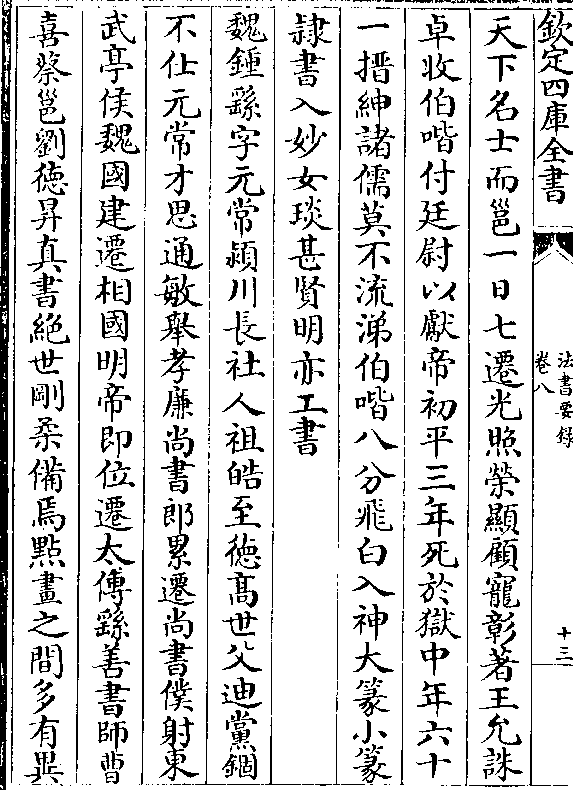 欽定四庫全書
法書要錄
卷八
十三
天下名士而邕一日七遷光照榮顯顧寵彰著王允誅
卓收伯喈付廷尉以獻帝初平三年死於獄中年六十
一搢紳諸儒莫不流涕伯喈八分飛白入神大篆小篆
隷書入妙女琰甚賢明亦工書
魏鍾繇字元常潁川長社人祖皓至徳髙世父迪黨錮
不仕元常才思通敏舉孝廉尚書郎累遷尚書僕射東
武亭侯魏國建遷相國明帝即位遷太傅繇善書師曹
喜蔡邕劉徳昇真書絶世剛柔備焉點畫之間多有異